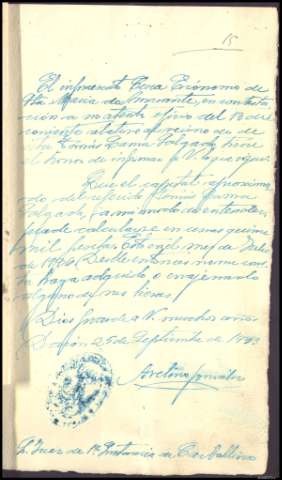 15
El infrascrito Cura Ecónomo de
Sta María de, en contesta
ción a su atento oficio del 18 del
corriente relativo al vecino de
esta Tomás Dama Salgado, tiene
el honor de informar a V. lo que sigue:
Que el capital aproximado
do del referido Tomás Dama
Salgado, a mi modo de entender,
puede calcularse en unas quince
mil pesetas. Esto en el mes de Julio
de 1936. Desde entonces no me consta
haya adquirido o enajenado
alguno de sus bienes.
Dios guarde a V. muchos años.
25 de Septiembre de 19
Avelino González
S. Juez de 1ª Instancia de Carballino